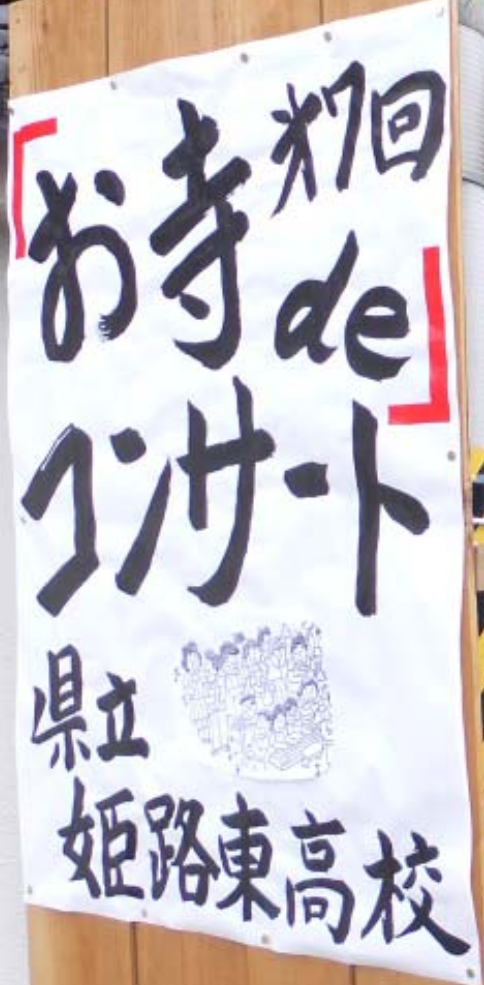 第7回
「お寺de」
コンサート
県立
姫路東高校